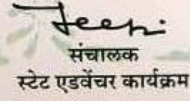 संचालक
स्टेट एडवेंचर कार्यक्रम